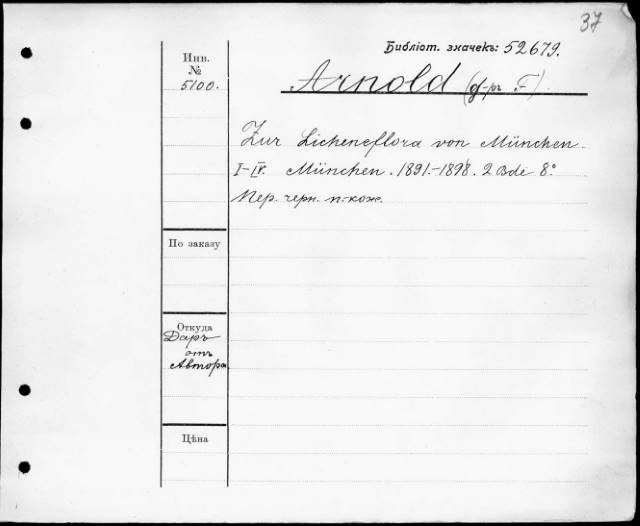 37
Библіот. значекъ: 52679.
Инв.
№
5100.
Arnold (д-ръ F).
Zur Lichenenflora von München.
I-IV. München. 1891.-1898. 2 Bde 8.°
Пер. черн. п.-кож.
По заказу
Откуда
Даръ
отъ
Автора
Цѣна